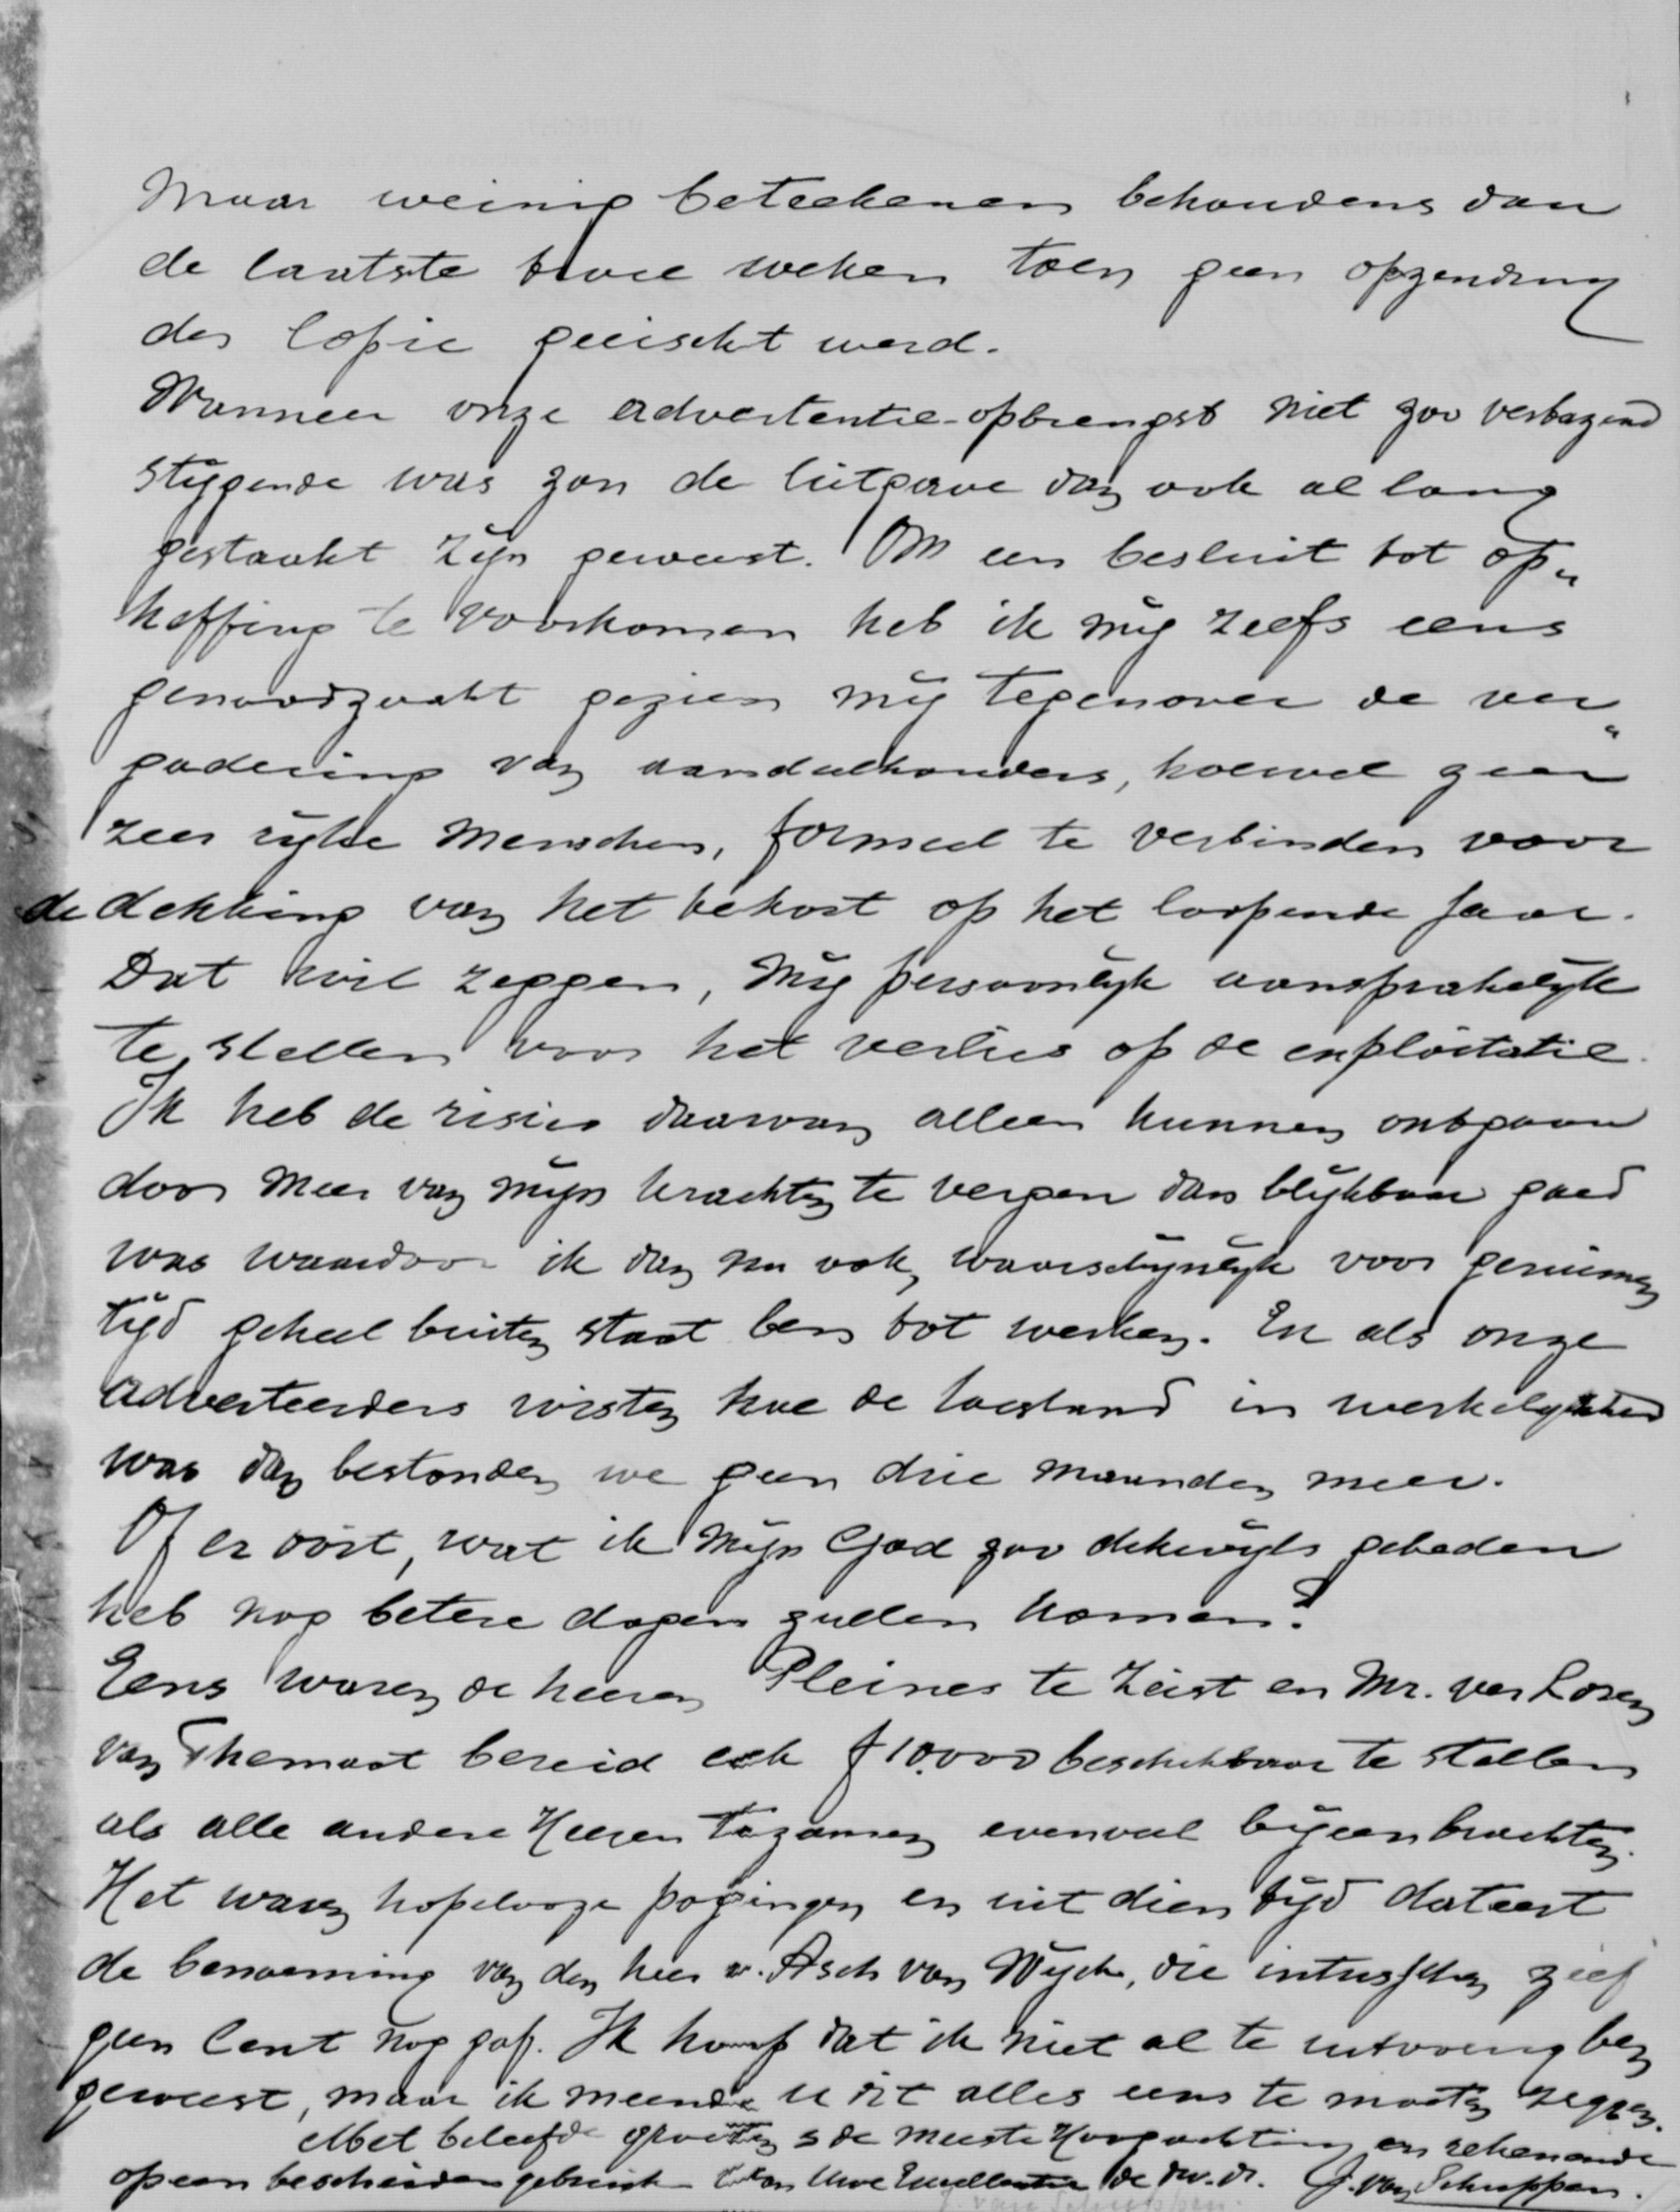 Maar weinig beteekenen behoudens dan
de laatste twee weken toen geen opzending
der Copie geeischt werd.
Wanneer onze advertentie-opbrengst niet zoo verbazend
stijgende was zou de uitgave dan ook al lang
gestaakt zijn geweest. Om een besluit tot op„
heffing te voorkomen heb ik mij zelfs eens
genoodzaakt gezien mij tegenover de ver„
gadering van aandeelhouders, hoewel geen
zeer rijke menschen, formeel te verbinden voor
de dekking van het tekort op het loopende jaar.
Dat wil zeggen, mij persoonlijk aansprakelijk
te stellen voor het verlies op de exploitatie.
Ik heb de risico daarvan alleen kunnen ontgaan
door meer van mijn krachten te vergen dan blijkbaar goed
was waardoor ik dan nu ook, waarschijnlijk voor geruimen
tijd geheel buiten staat ben tot werken. En als onze
adverteerders wisten hoe de toestand in werkelijkheid
was dan bestonden we geen drie maanden meer.
Of er ooit, wat ik mijn God zoo dikwijls gebeden
heb nog betere dagen zullen komen?
Eens waren de heeren Pleines te Zeist en Mr. ver Loren
van Themaat bereid elk f 10.000 beschikbaar te stellen
als alle andere Heeren tezamen evenveel bijeenbrachten.
Het waren hopelooze pogingen en uit dien tijd dateert
de benoeming van den heer v. Asch van Wijck, die intusschen zelf
geen Cent nog gaf. Ik hoop dat ik niet al te uitvoerig ben
geweest, maar ik meende u dit alles eens te moeten zeggen.
Met beleefde groeten & de meeste Hoogachting en rekenende
op een bescheiden gebruik van Uwe Excellentie de dw. dr. J. van Schuppen.